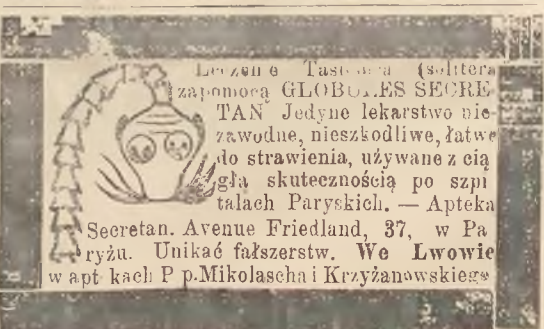 Leczenie Tasiemca (solitera
zapomocą GLOBULES SECRE-
TAN Jedyne lekarstwo nie-
zawodne, nieszkodliwe, łatwe
do strawienia, używane z cią
gła skutecznością po szpi
talach Paryskich. — Apteka
Secretan. Avenue Friedland, 37, w Pa
ryżu. Unikać fałszerstw. We Lwowie
w apt kach P p. Mikolascha i Krzyżanowskiego